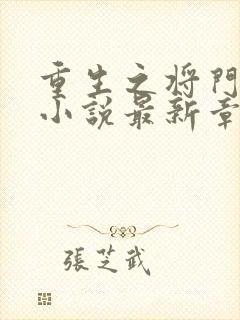 重生之将門
小説最新章
張芝武